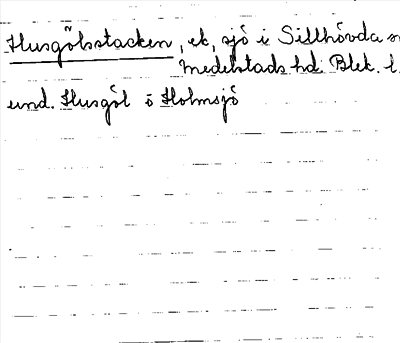 Husgölsstacken, ek, sjö i Sillhövda
Medelstads hd. Blek. l
und. Husgöl o Holmsjö